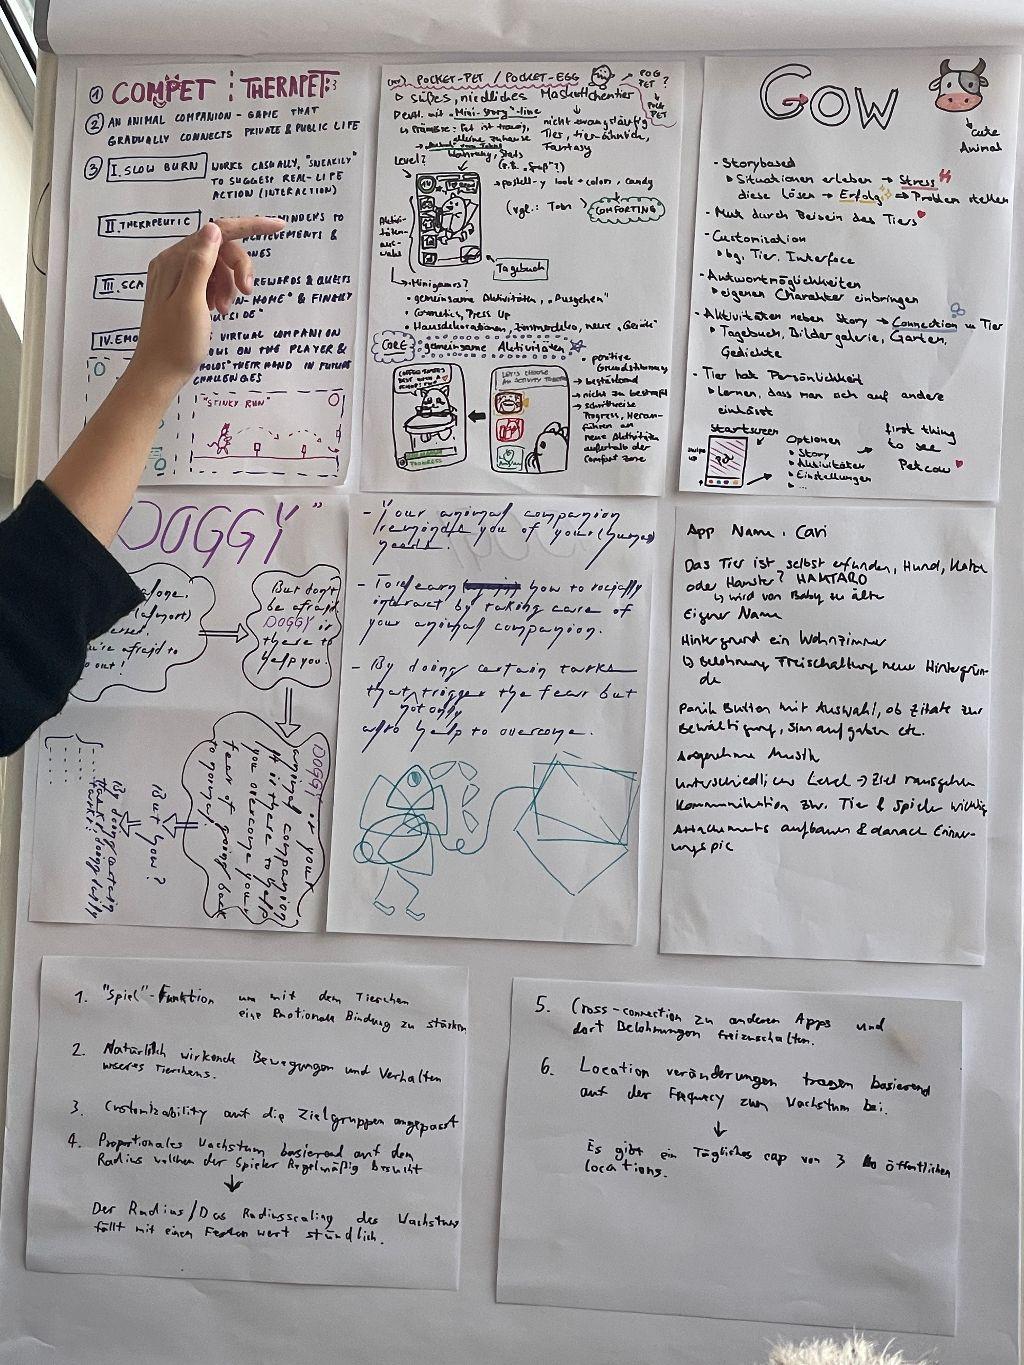 1 COMPET : THERAPET
2 AN ANIMAL COMPANION - GAME THAT
GRADUALLY CONNECTS PRIVATE & PUBLIC LIFE
3 I. SLOW BURN
WORKS CASUALLY, "SNEAKILY"
TO SUGGEST REAL-LIFE
ACTION (INTERACTION)
II. THERAPEUTIC
TO
&
REWARDS & QUESTS
& FINALLY
IV.
VIRTUAL COMPANION
ON THE PLAYER &
THEIR HAND IN FUTURE
CHALLENGES
"STINKY RUN"
POCKET-PET / POCKET-EGG
POG
PET?
POCK
PET
süßes, niedliches Maskottchentier
"Mini-Story"-line
nicht zwangsläufig
Tier, tierähnlich,
Fantasy
alleine zuhause
Nahrung, Stats
Level?
look + colors, candy
(vgl.: Toon)
COMFORTING
Aktivi-
täten-
aus-
wahl
Tagebuch
Minigames?
• gemeinsame Aktivitäten, "Ausgehen"
• Cosmetics, Dress Up
• Hausdekorationen, Zimmerdeko, neue "Geräte"
CORE: gemeinsame Aktivitäten
LET'S CHOOSE
AN ACTIVITY
• positive
Grundstimmung
→ bestärkend
→ nicht zu bestraft
→ schrittweise
Progress, Heran-
führen an
neue Aktivitäten
außerhalb der
Comfort Zone
GOW
cute
Animal
- Storybased
Situationen erleben → Stress
diese lösen → Erfolg → Problem stellen
- Mut durch Beisein des Tiers
- Customization
bg, Tier, Interface
- Antwortmöglichkeiten
eigenen Charakter einbringen
- Aktivitäten neben Story → Connection w Tier
Tagebuch, Bildergalerie, Garten,
Gedichte
- Tier hat Persönlichkeit
Lernen, dass man sich auf andere
einlässt
Startscreen
swipe
up
Optionen
• Story
• Aktivitäten
• Einstellungen
• ...
first thing
to see
Petcow
DOGGY"
alone.
(almost)
afraid to
out!
But don't
be afraid
DOGGY is
there to
help you.
DOGGY is your
animal companion
It is there to help
you overcome your
fear of going back
to normal.
But how?
By doing certain
tasks!
- Your animal companion
reminds you of your (human)
needs.
- To learn how to socially
interact by taking care of
your animal companion.
- By doing certain tasks
that trigger the fear but
not only
also help to overcome.
App Name: Cari
Das Tier ist selbst erfunden, Hund, Katze
oder Hamster? HAMTARO
↳ wird von Baby zu älter
Eigener Name
Hintergrund ein Wohnzimmer
↳ Belohnung Freischaltung neue Hintergrün-
de
Panik Button mit Auswahl, ob Zitate zur
Bewältigung, etc.
Angenehme Musik
Unterschiedliche Level → Ziel rausgehen
Kommunikation zw. Tier & Spieler wichtig
Attachments aufbauen & danach Erinner-
ungspic
1. "Spiel"-Funktion um mit dem Tierchen
eine Emotionale Bindung zu stärken
2. Natürlich wirkende Bewegungen und Verhalten
unseres Tierchens.
3. Customizability auf die Zielgruppen angepasst
4. Proportionales Wachstum basierend auf dem
Radius welchen der Spieler Regelmäßig besucht
↓
Der Radius/Das Radiusscaling des Wachstums
fällt mit einem Festen wert stündlich.
5. Cross-connection zu anderen Apps und
dort Belohnungen freizuschalten.
6. Location veränderungen tragen basierend
auf der Frequency zum Wachstum bei.
↓
Es gibt ein Tägliches cap von 3 öffentlichen
locations.